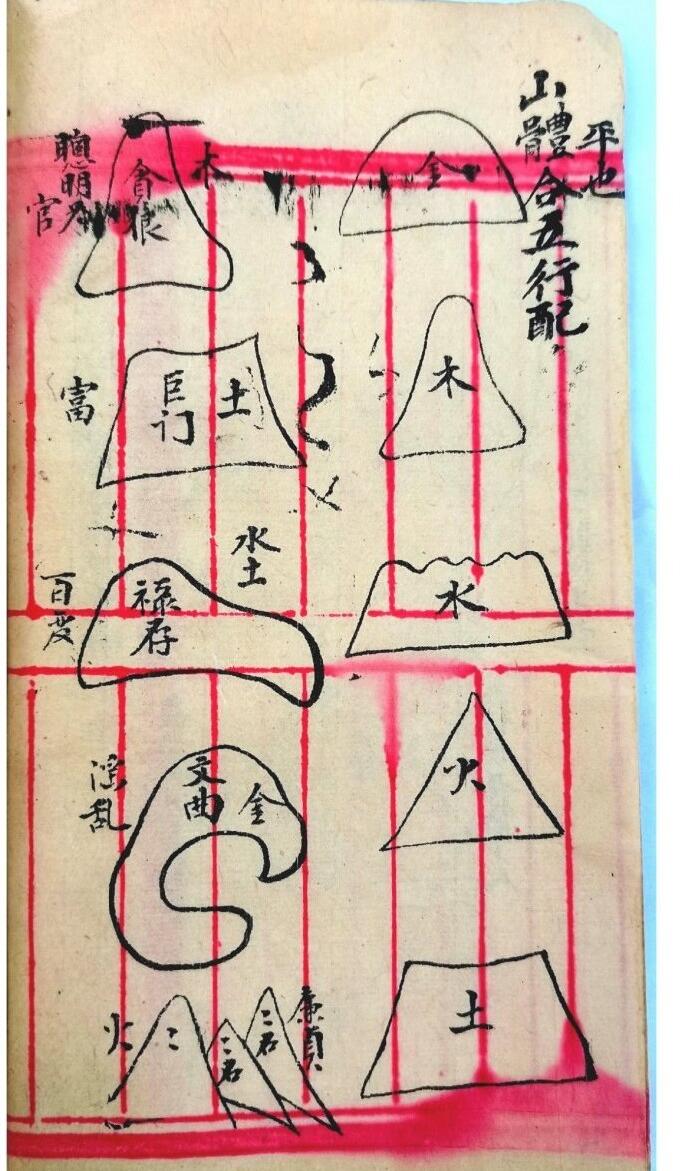 平也
山體合五行配
金
木
水
火
土
木
貪狼
聰明
官
土
巨门
富
水土
禄存
文曲
金
淫乱
廉貞
火
二
二君
二君